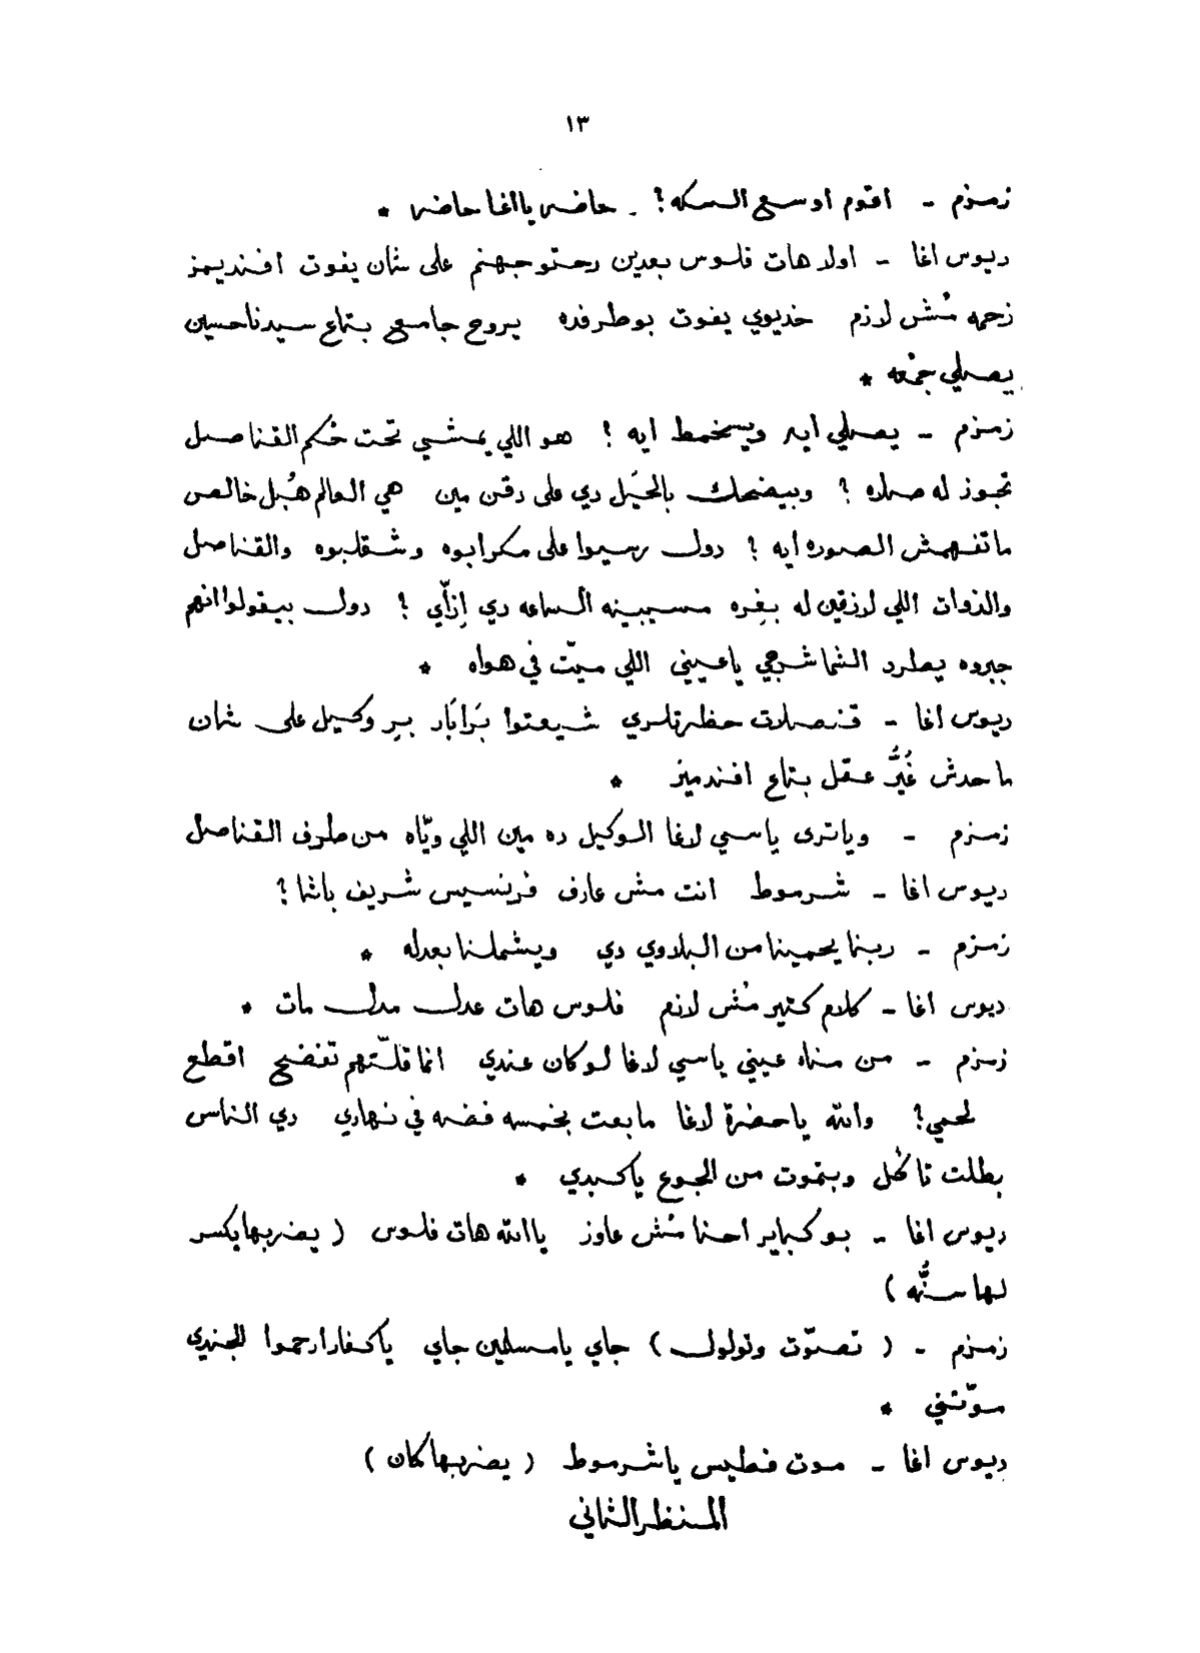 ١٣
زمزم - اقوم اوسع السكه؟ - حاضر يا اغا حاضر *
ديوس اغا - اولا هات فلوس بعدين رحتو جهنم على شان يفوت افنديمز
زحمه مُش لازم خديوي يفوت بوطرفده يروح جامع بتاع سيدنا حسين
يصلي جمْعه *
زمزم - يصلي ايه ويسخمط ايه ؟ هو اللي يمشي تحت حُكم القناصل
تجوز له صلاه ؟ وبيضحك بالحيَل دي على دقن مين هي العالم هُبل خالص
ما تفهمش الصوره ايه ؟ دول رسيوا على مكر ابوه وشقلبوه والقناصل
والذوات اللي لازقين له بغِره مسيبينه الساعه دي اِزّاي ؟ دول بيقولوا انهم
جبروه يطرد الشماشرجي ياعيني اللي ميّت في هواه *
ديوس اغا - قنصلات حظرتلري شيعتوا بَرَابَار بِر وكيل على شان
ما حدش غُيُّر عقل بتاع افندميز *
زمزم - وياترى ياسي لاغا الوكيل ده مين اللي ويّاه من طرف القناصل
ديوس اغا - شرموط انت مش عارف فرينسيس شريف باشا ؟
زمزم - ربنا يحمينا من البلاوي دي ويشملنا بعدله *
ديوس اغا - كلام كتير مُش لازم فلوس هات عدل مدل مات *
زمزم - من مناه عيني ياسي لاغا لو كان عندي انما قلّتهم تفضح اقطع
لحمي؟ والله ياحضرة لاغا مابعت بخمسه فضه في نهاري دي الناس
بطلت تاكُل وبتموت من الجوع ياكبدي *
ديوس اغا - بو كباير احنا مُش عاوز ياالله هات فلوس ( يضربها يكسر
لها سنُّه )
زمزم - ( تصوّت وتولول ) جاي يامسلمين جاي ياكفار ارحموا الجندي
موّتني *
ديوس اغا - موت فطيس ياشرموط ( يضربها كان )
المنظر الثاني